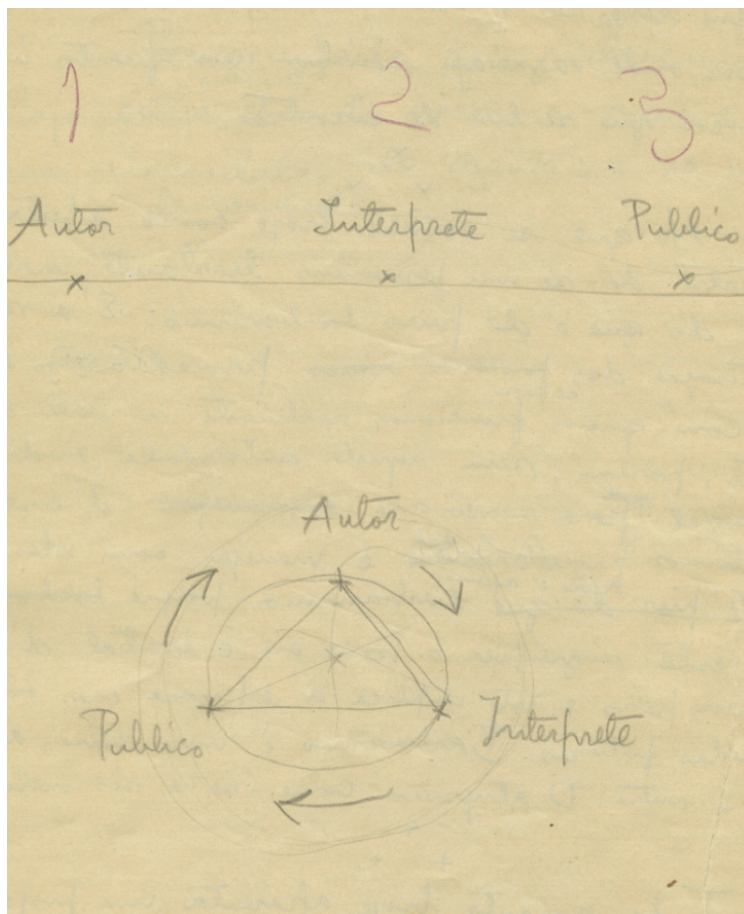 1 2 3
Autor Interprete Publico
Autor
Publico Interprete